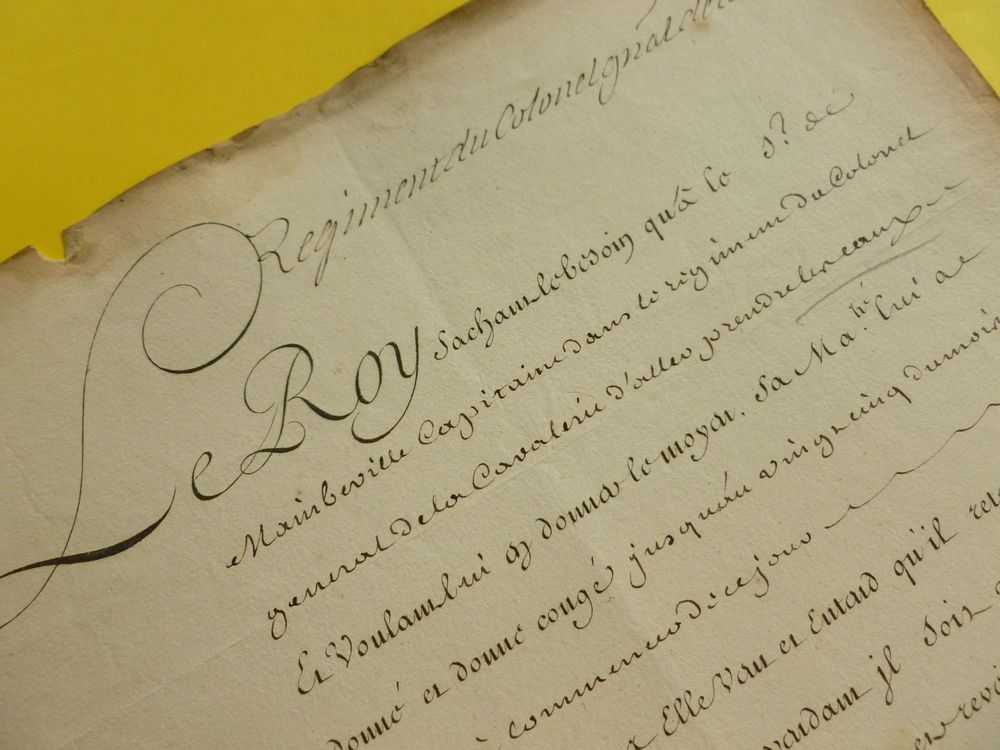 Regiment du Colonel gñal de
Le ROY Sachant le besoin qu'à le Sr. de
Mainbeville Capitaine dans le regiment du Colonel
general de la Cavalerie d'aller prendre les eaux
Et Voulant lui en donner le moyen. Sa Maté. lui a
donné et donne congé jusqu'au vingt cinq du mois
à commencer de ce jour
Elle Veut et Entend qu'il
pendant jl Soit